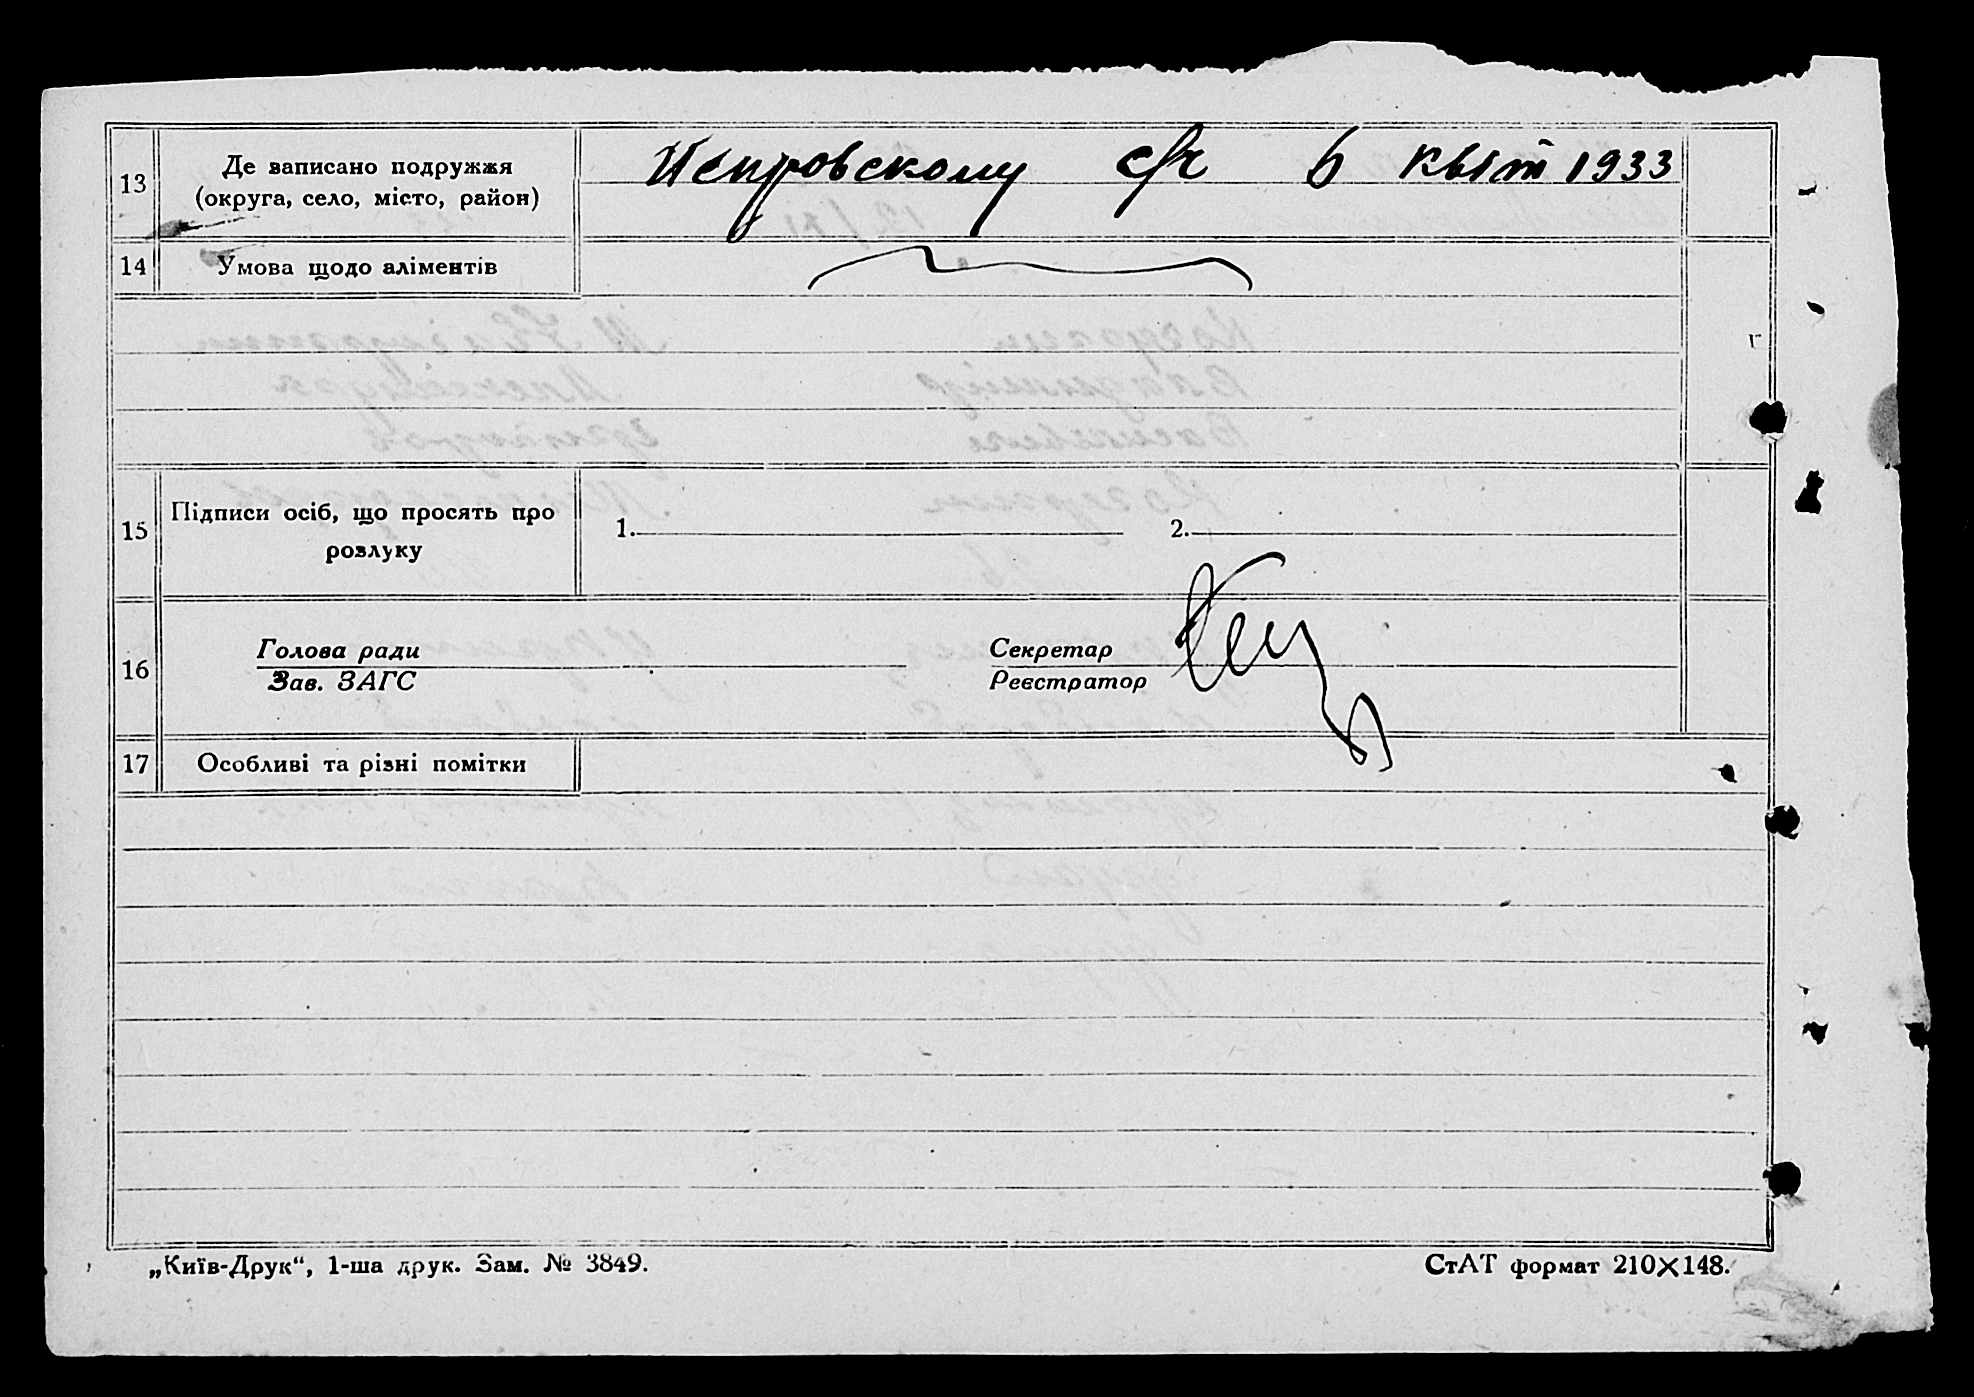 13 Де записано подружжя
(округа, село, місто, район)
6 квіт 1933
14 Умова щодо аліментів
15 Підписи осіб, що просять про
розлуку
1. 2.
16 Голова ради Секретар
Зав. ЗАГС Реєстратор
17 Особливі та різні помітки
„Київ-Друк“, 1-ша друк. Зам. № 3849. СтАТ формат 210×148.